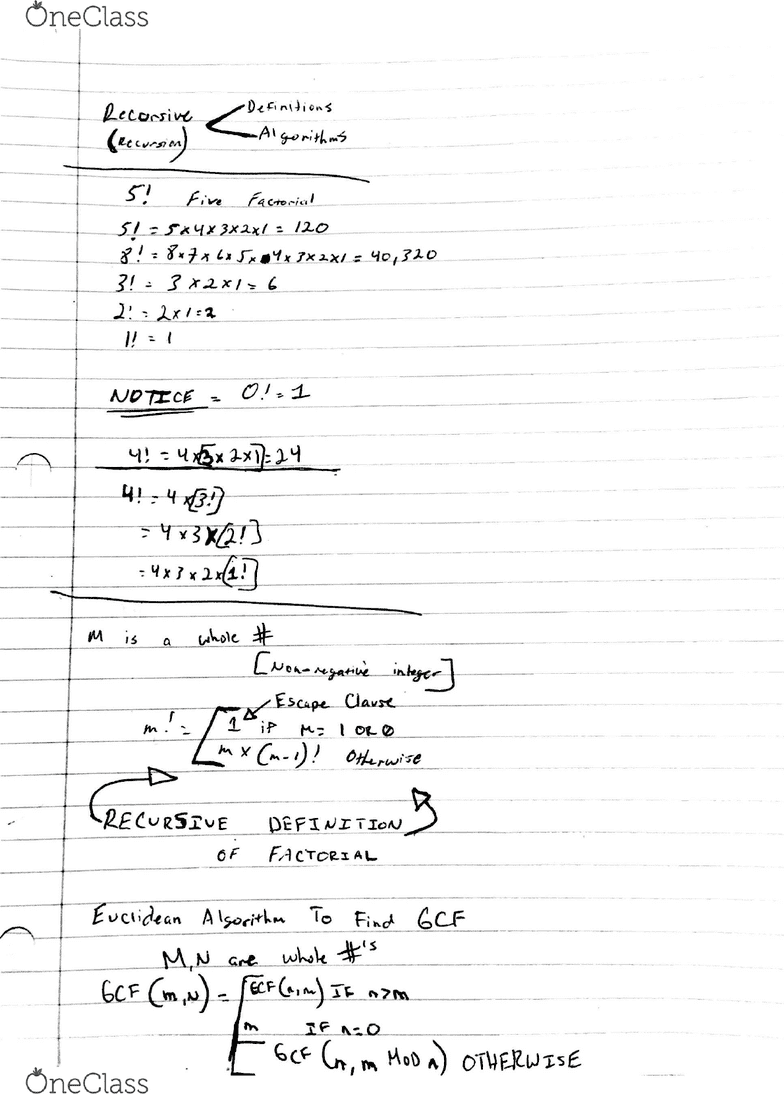 OneClass
Recursive
(Recursion)
Definitions
Algorithms
5! Five Factorial
5! = 5x4x3x2x1 = 120
8! = 8x7x6x5x4x3x2x1 = 40,320
3! = 3x2x1 = 6
2! = 2x1=2
1! = 1
NOTICE = 0! = 1
4! = 4x[3x2x1]=24
4! = 4x[3!]
= 4x3x[2!]
= 4x3x2x[1!]
M is a whole #
[Non-negative integer]
Escape Clause
m! = [1 if M = 1 OR 0
m x (m-1)! Otherwise
RECURSIVE DEFINITION
OF FACTORIAL
Euclidean Algorithm To Find GCF
M,N are whole #'s
GCF (m,N) = [GCF(n,m) IF n>m
m IF n=0
GCF (n, m MOD n) OTHERWISE
OneClass